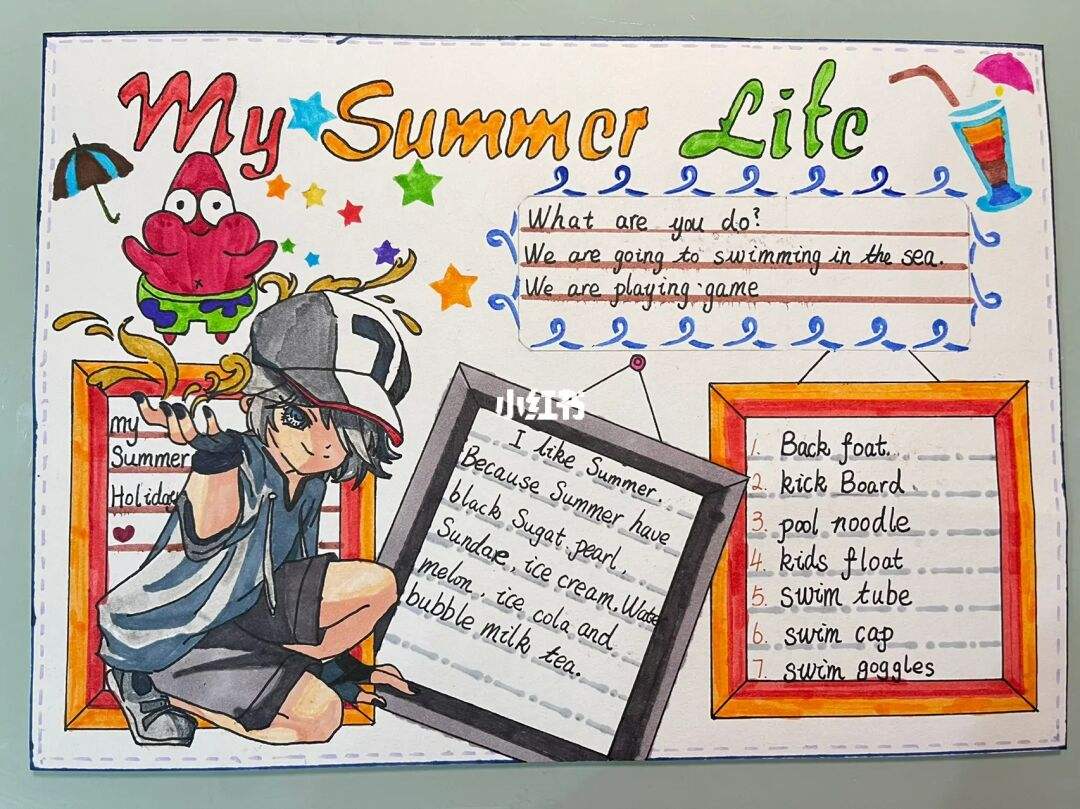 My Summer Life
What are you do?
We are going to swimming in the sea.
We are playing game
my
Summer
Holiday
小红书
I like Summer.
Because Summer have
black Sugat pearl,
Sundae, ice cream. Water
melon, ice cola and
bubble milk tea.
1. Back foat.
2. kick Board
3. pool noodle
4. kids float
5. swim tube
6. swim cap
7. swim goggles